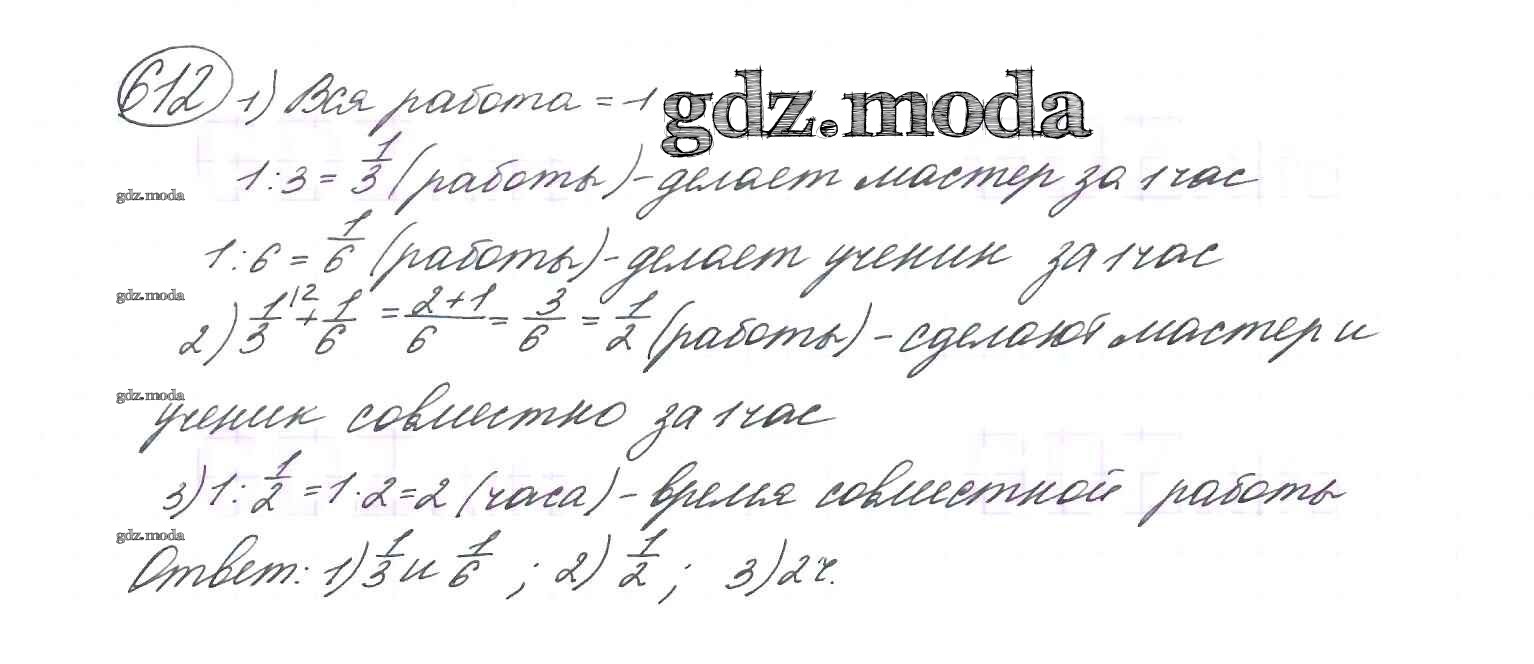 612 1) Вся работа = 1 gdz.moda
1 : 3 = 1/3 (работы) - делает мастер за 1 час
gdz.moda
1 : 6 = 1/6 (работы) - делает ученик за 1 час
gdz.moda
2) 1/3 |2 + 1/6 = 2+1/6 = 3/6 = 1/2 (работы) - сделают мастер и
gdz.moda
ученик совместно за 1 час
3) 1 : 1/2 = 1 · 2 = 2 (часа) - время совместной работы
gdz.moda
Ответ: 1) 1/3 и 1/6 ; 2) 1/2 ; 3) 2 ч.